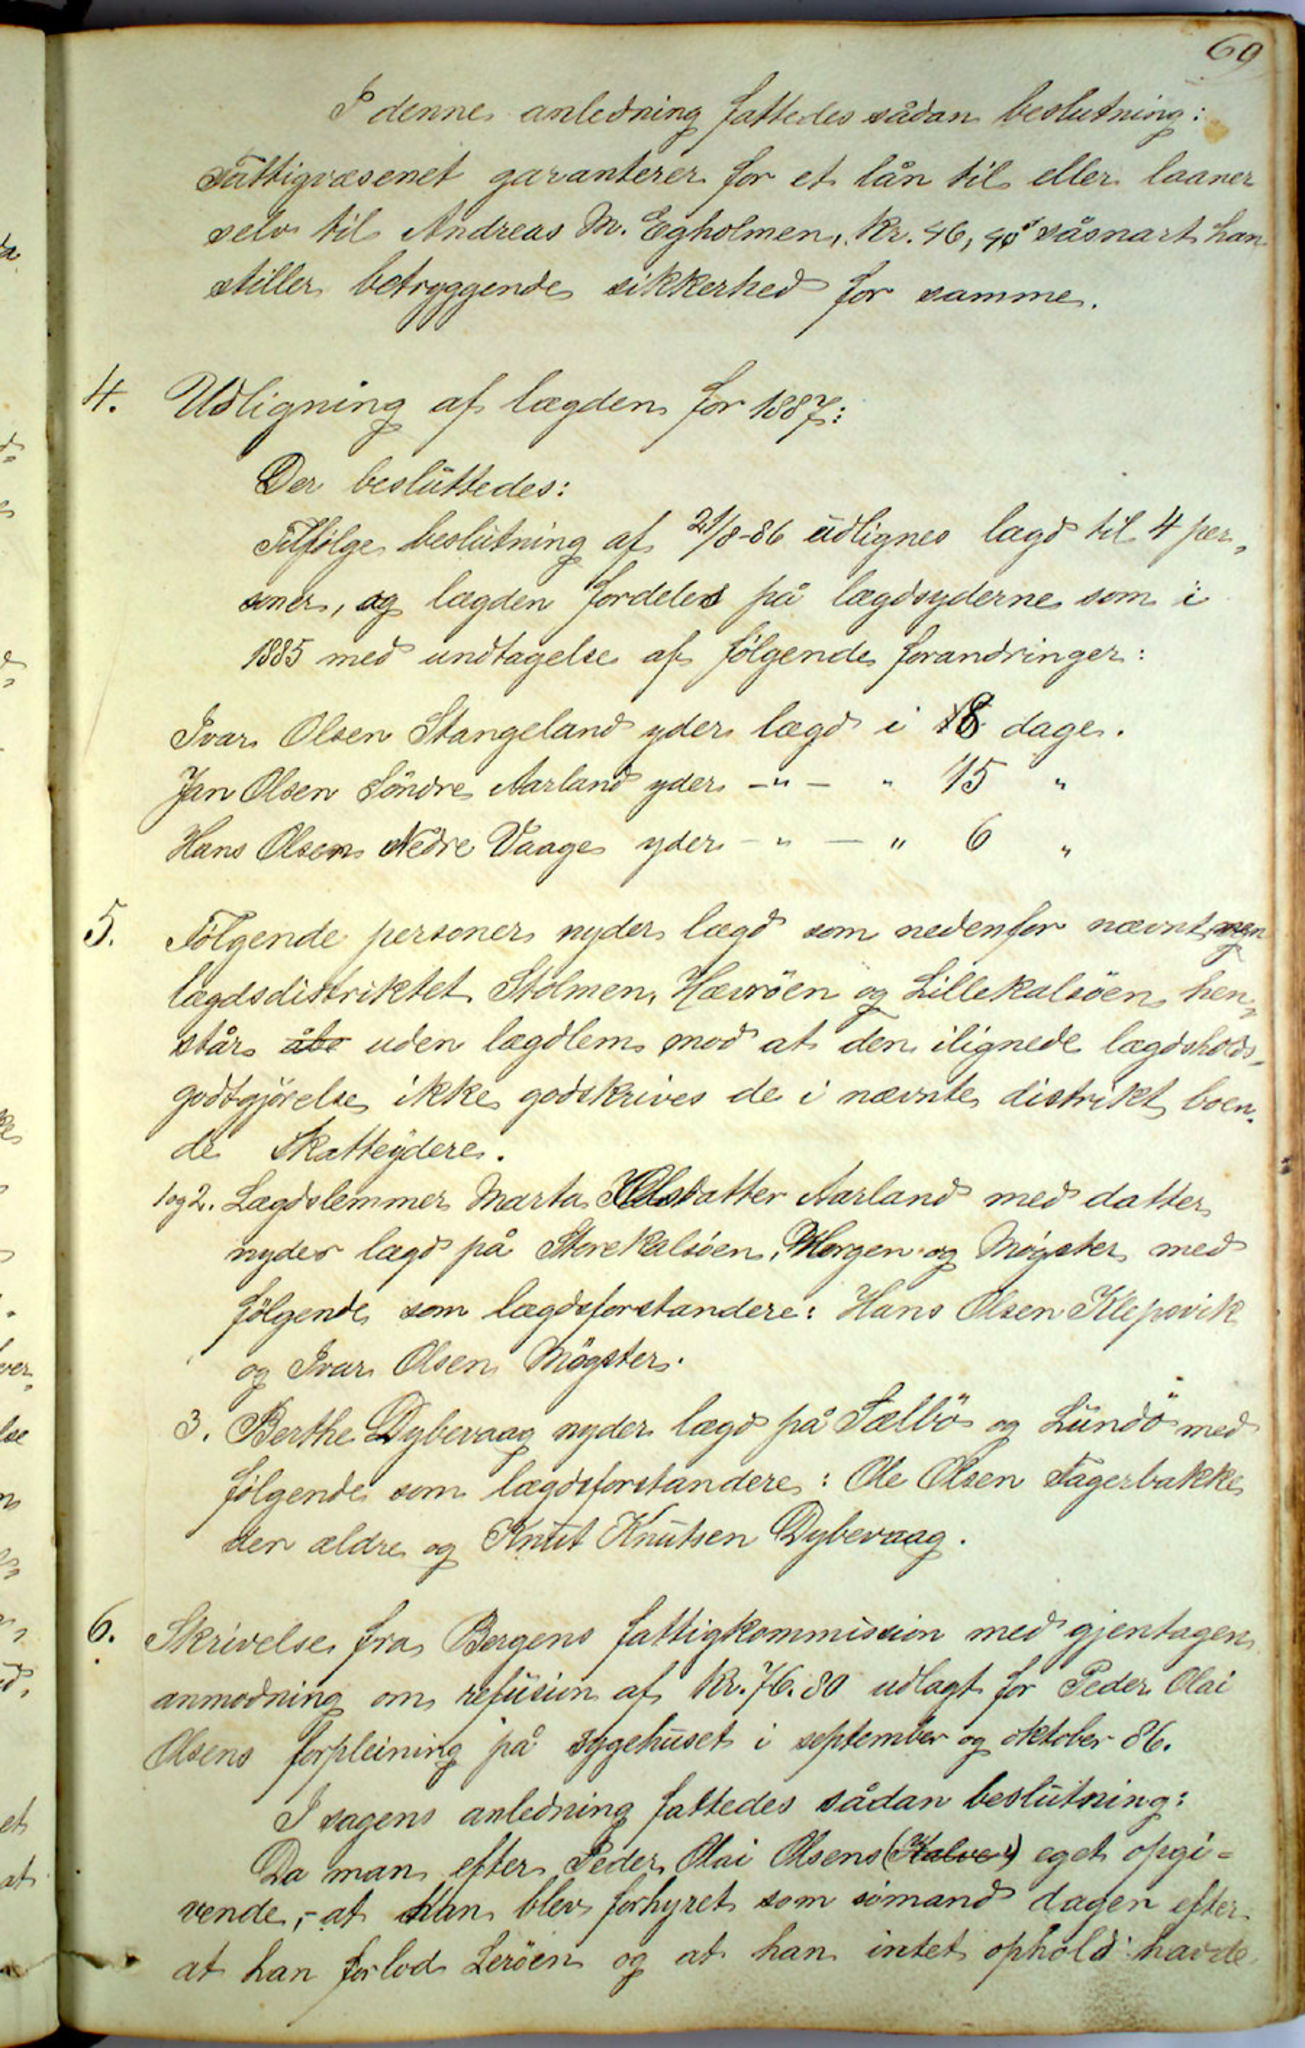 69
I denne anledning fattedes sådan beslutning:
Fattigvæsenet garanterer for et lån til eller laaner
selv til Andreas M. Egholmen, kr. 46,40 såsnart han
stiller betryggende sikkerhed for samme.
4. Udligning af lægden for 1887:
Der besluttedes:
Tilfølge beslutning af 21/8-86 udlignes lægd til 4 per„
soner, og lægden fordeles på lægdsyderne som i
1885 med undtagelse af følgende forandringer:
Ivar Olsen Stangeland yder lægd i 18 dage.
Jan Olsen Söndre Aarland yder -„- „ 15 „
Hans Olsen Nedre Vaage yder -„- „ 6 „
5. Følgende personer nyder lægd som nedenfor nævnt, men
lægdsdistriktet Stolmen, Hævröen og Lillekalsöen hen„
står uden lægdlem mod at den ilignede lægdsholds„
godtgjörelse ikke godskrives de i nævnte distrikt boen„
de Skatteydere.
1og2. Lægdslemmer Marta Olsdatter Aarland med datter
nyder lægd på Storekalsöen, Horgen og Møgster med
følgende som lægdsforstandere: Hans Olsen Klepsvik
og Ivar Olsen Møgster.
3. Berthe Dybevaag nyder lægd på Sælbö og Lundö med
følgende som lægdsforstandere: Ole Olsen Fagerbakke
den ældre og Knut Knutsen Dybevaag.
6. Skrivelse fra Bergens fattigkommission med gjentagen
anmodning om refusion af kr. 76.80 udlagt for Peder Olai
Olsens forpleining på sygehuset i september og oktober 86.
I sagens anledning fattedes sådan beslutning:
Da man efter Peder Olai Olsens (Kalve) eget opgi=
vende,- at han blev forhyret som sömand dagen efter
at han forlod Leröen og at han intet ophold havde